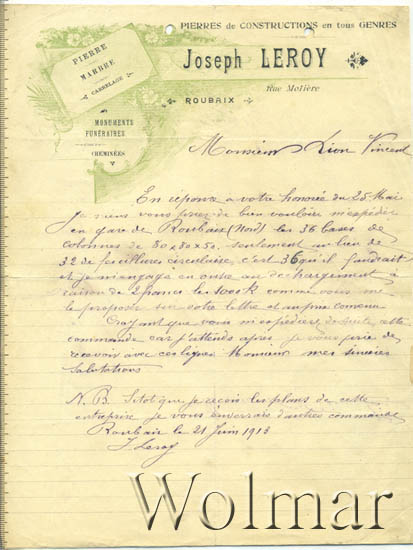 PIERRES de CONSTRUCTIONS en tous GENRES
Joseph LEROY
Rue Molière
ROUBAIX
PIERRE
MARBRE
CARRELAGE
MONUMENTS
FUNÉRAIRES
CHEMINÉES
Monsieur Lion Vincent
En réponse a votre honorée du 25 Mai
Je viens vous prier de bien vouloir m'expédier
en gare de Roubaix (Nord) les 36 bases de
colonnes de 50x50x50, seulement au lieu de
32 de feuillures circulaire, c'est 36 qu'il faudrait
et je m'engage en outre au déchargement à
raison de 2 francs les 1000 K comme vous me
le proposé sur votre lettre et au prix convenu.
Croyant que vous m'expédierez de suite cette
commande car j'attends après, je vous prie de
recevoir avec ces lignes Monsieur mes sincères
salutations
N. B. Sitôt que je reçois les plans de cette
entreprise je vous enverrais d'autres commande
Roubaix le 21 Juin 1913
J Leroy
Wolmar